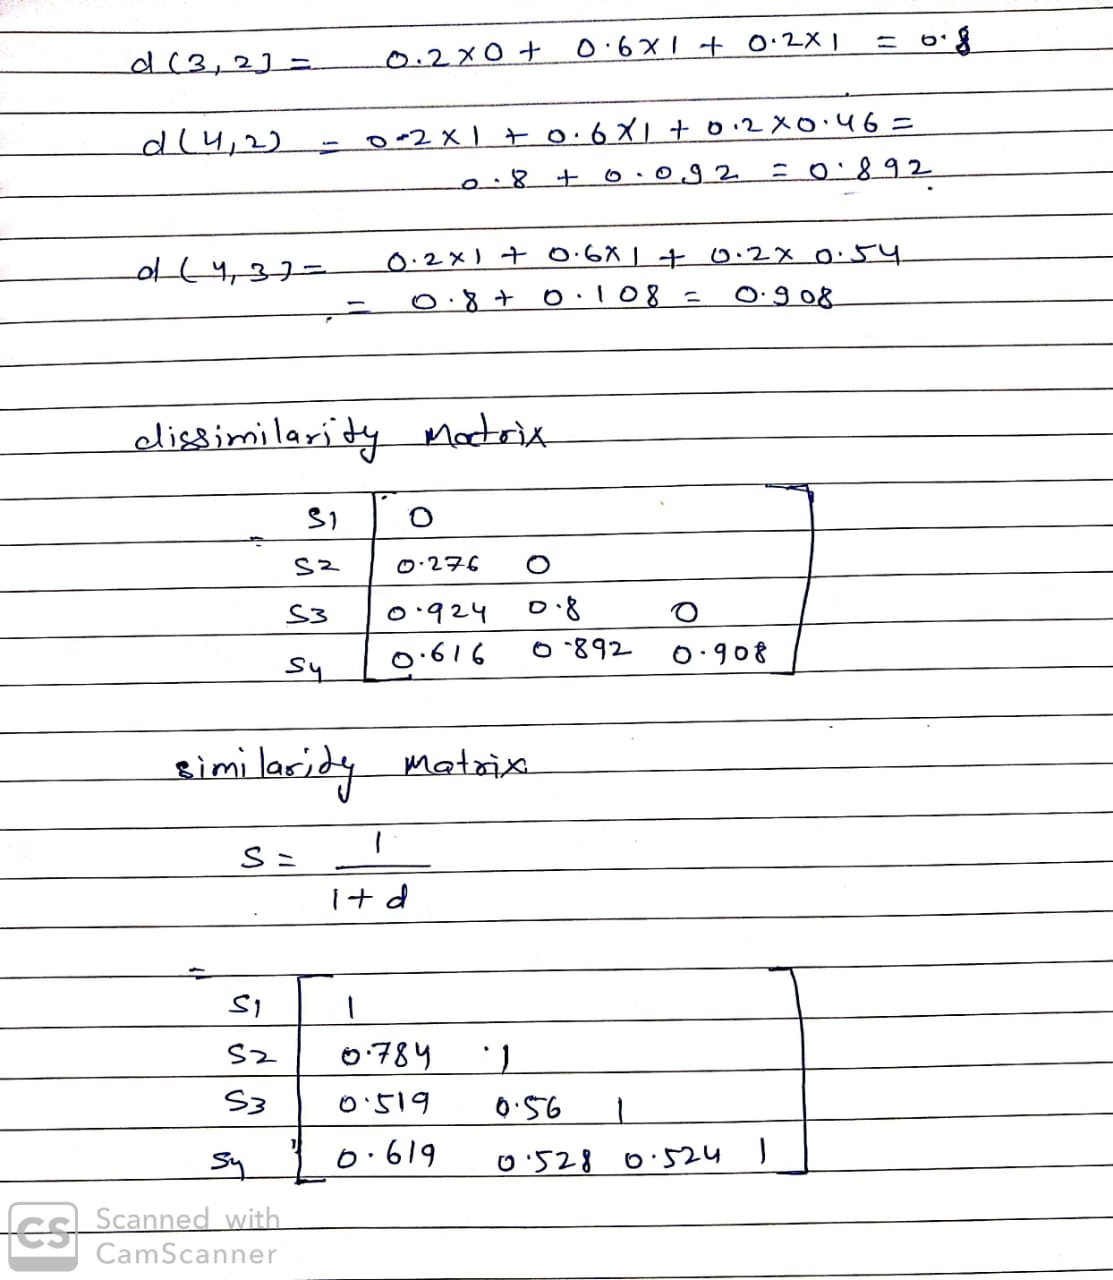 d(3,2) = 0.2×0 + 0.6×1 + 0.2×1 = 0.8
d(4,2) = 0.2×1 + 0.6×1 + 0.2×0.46 =
0.8 + 0.092 = 0.892
d(4,3) = 0.2×1 + 0.6×1 + 0.2×0.54
= 0.8 + 0.108 = 0.908
dissimilarity Matrix
= S1 0
S2 0.276 0
S3 0.924 0.8 0
S4 0.616 0.892 0.908
similarity Matrix
S = 1
1+d
= S1 1
S2 0.784 1
S3 0.519 0.56 1
S4 0.619 0.528 0.524 1
CS Scanned with
CamScanner